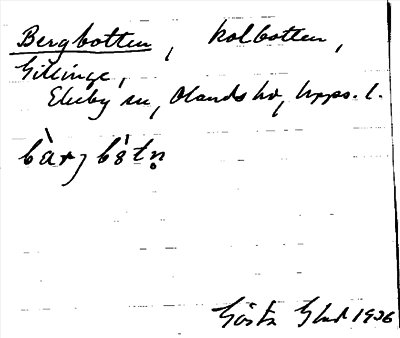 Bergbotten, kolbotten,
Gillinge,
Ekeby sn, Olands hd, Upps. l.
Gösta Glad 1936